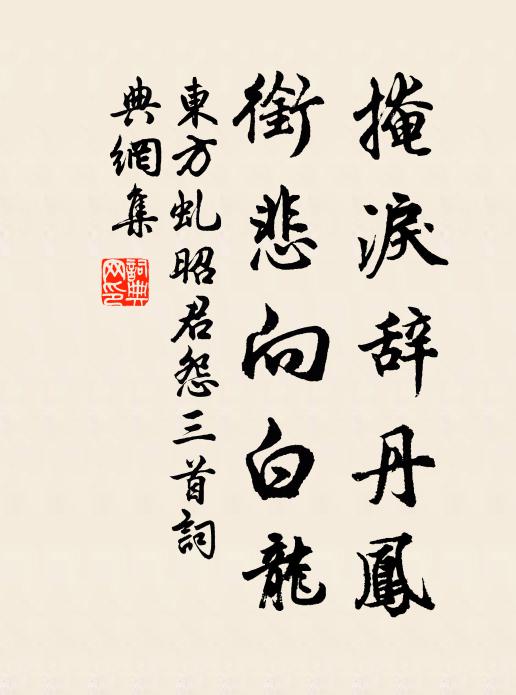 掩淚辞丹鳳
銜悲向白龍
東方虬昭君怨三首詞
典網集
詞典
网印